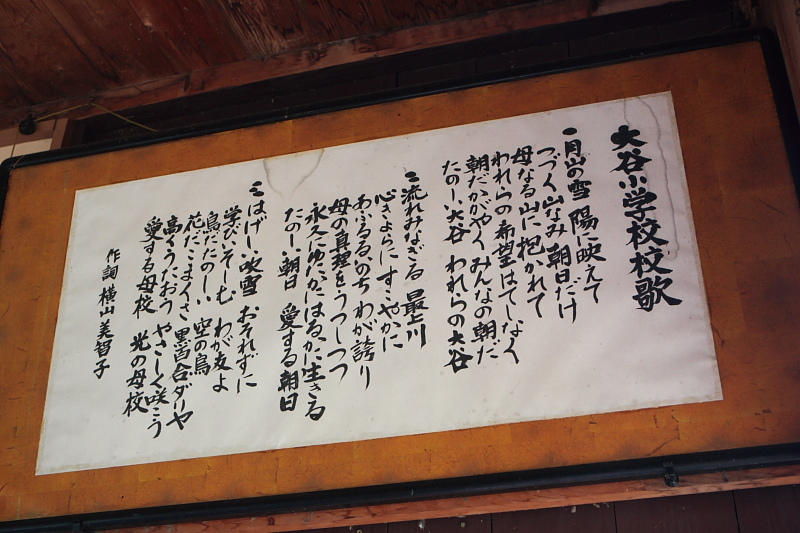 大谷小学校校歌
一、月山の雪 陽に映えて
つづく山なみ 朝日だけ
母なる山に 抱かれて
われらの希望 はてしなく
朝だかがやく みんなの朝だ
たのしい大谷 われらの大谷
二、流れみなぎる 最上川
心きよらに すこやかに
あふるるいのち わが誇り
母の真理を うつしつつ
永久にゆたかに はるかに生きる
たのしい朝日 愛する朝日
三、はげしい吹雪 おそれずに
学びいそしむ わが友よ
鳥だたのしい 空の鳥
花だこまくさ 黒百合ダリヤ
高くうたおう やさしく咲こう
愛する母校 光の母校
作詞 横山美智子